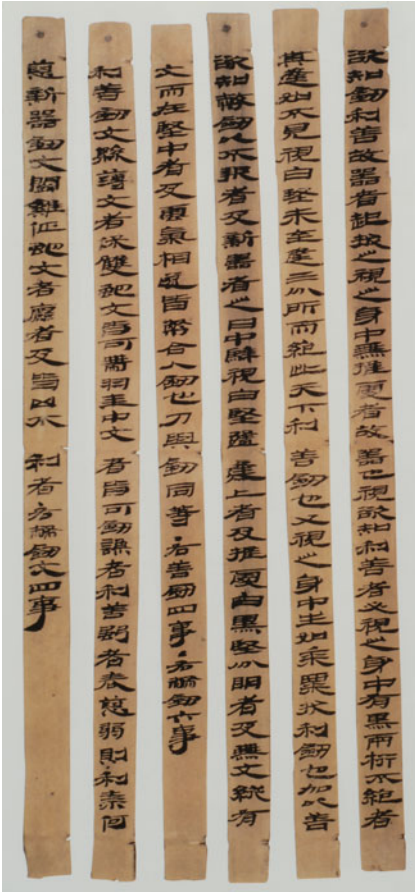 欲知劍利善故器者起拔之視之身中無推處者故器也視欲知利善者必視之身中有黑兩桁不絕者
其逢如不見視白堅未至逢三分所而絕此天下利善劍也又視之身中生如黍粟狀利劍也加以善
欲知幣劍以不報者及新器者之日中騂視白堅隨逢上者及推處白黑堅分明者及無文縱有
文而在堅中者及雲氣相遂皆幣合人劍也刀與劍同等·右善劍四事·右幣劍六事
利善劍文縣薄文者保雙蛇文皆可帶羽圭中文者皆可劍謙者利善強者表恙弱則利奈何
恙新器劍文鬭雞佂蛇文者麤者及皆凶不利者·右幣劍文四事